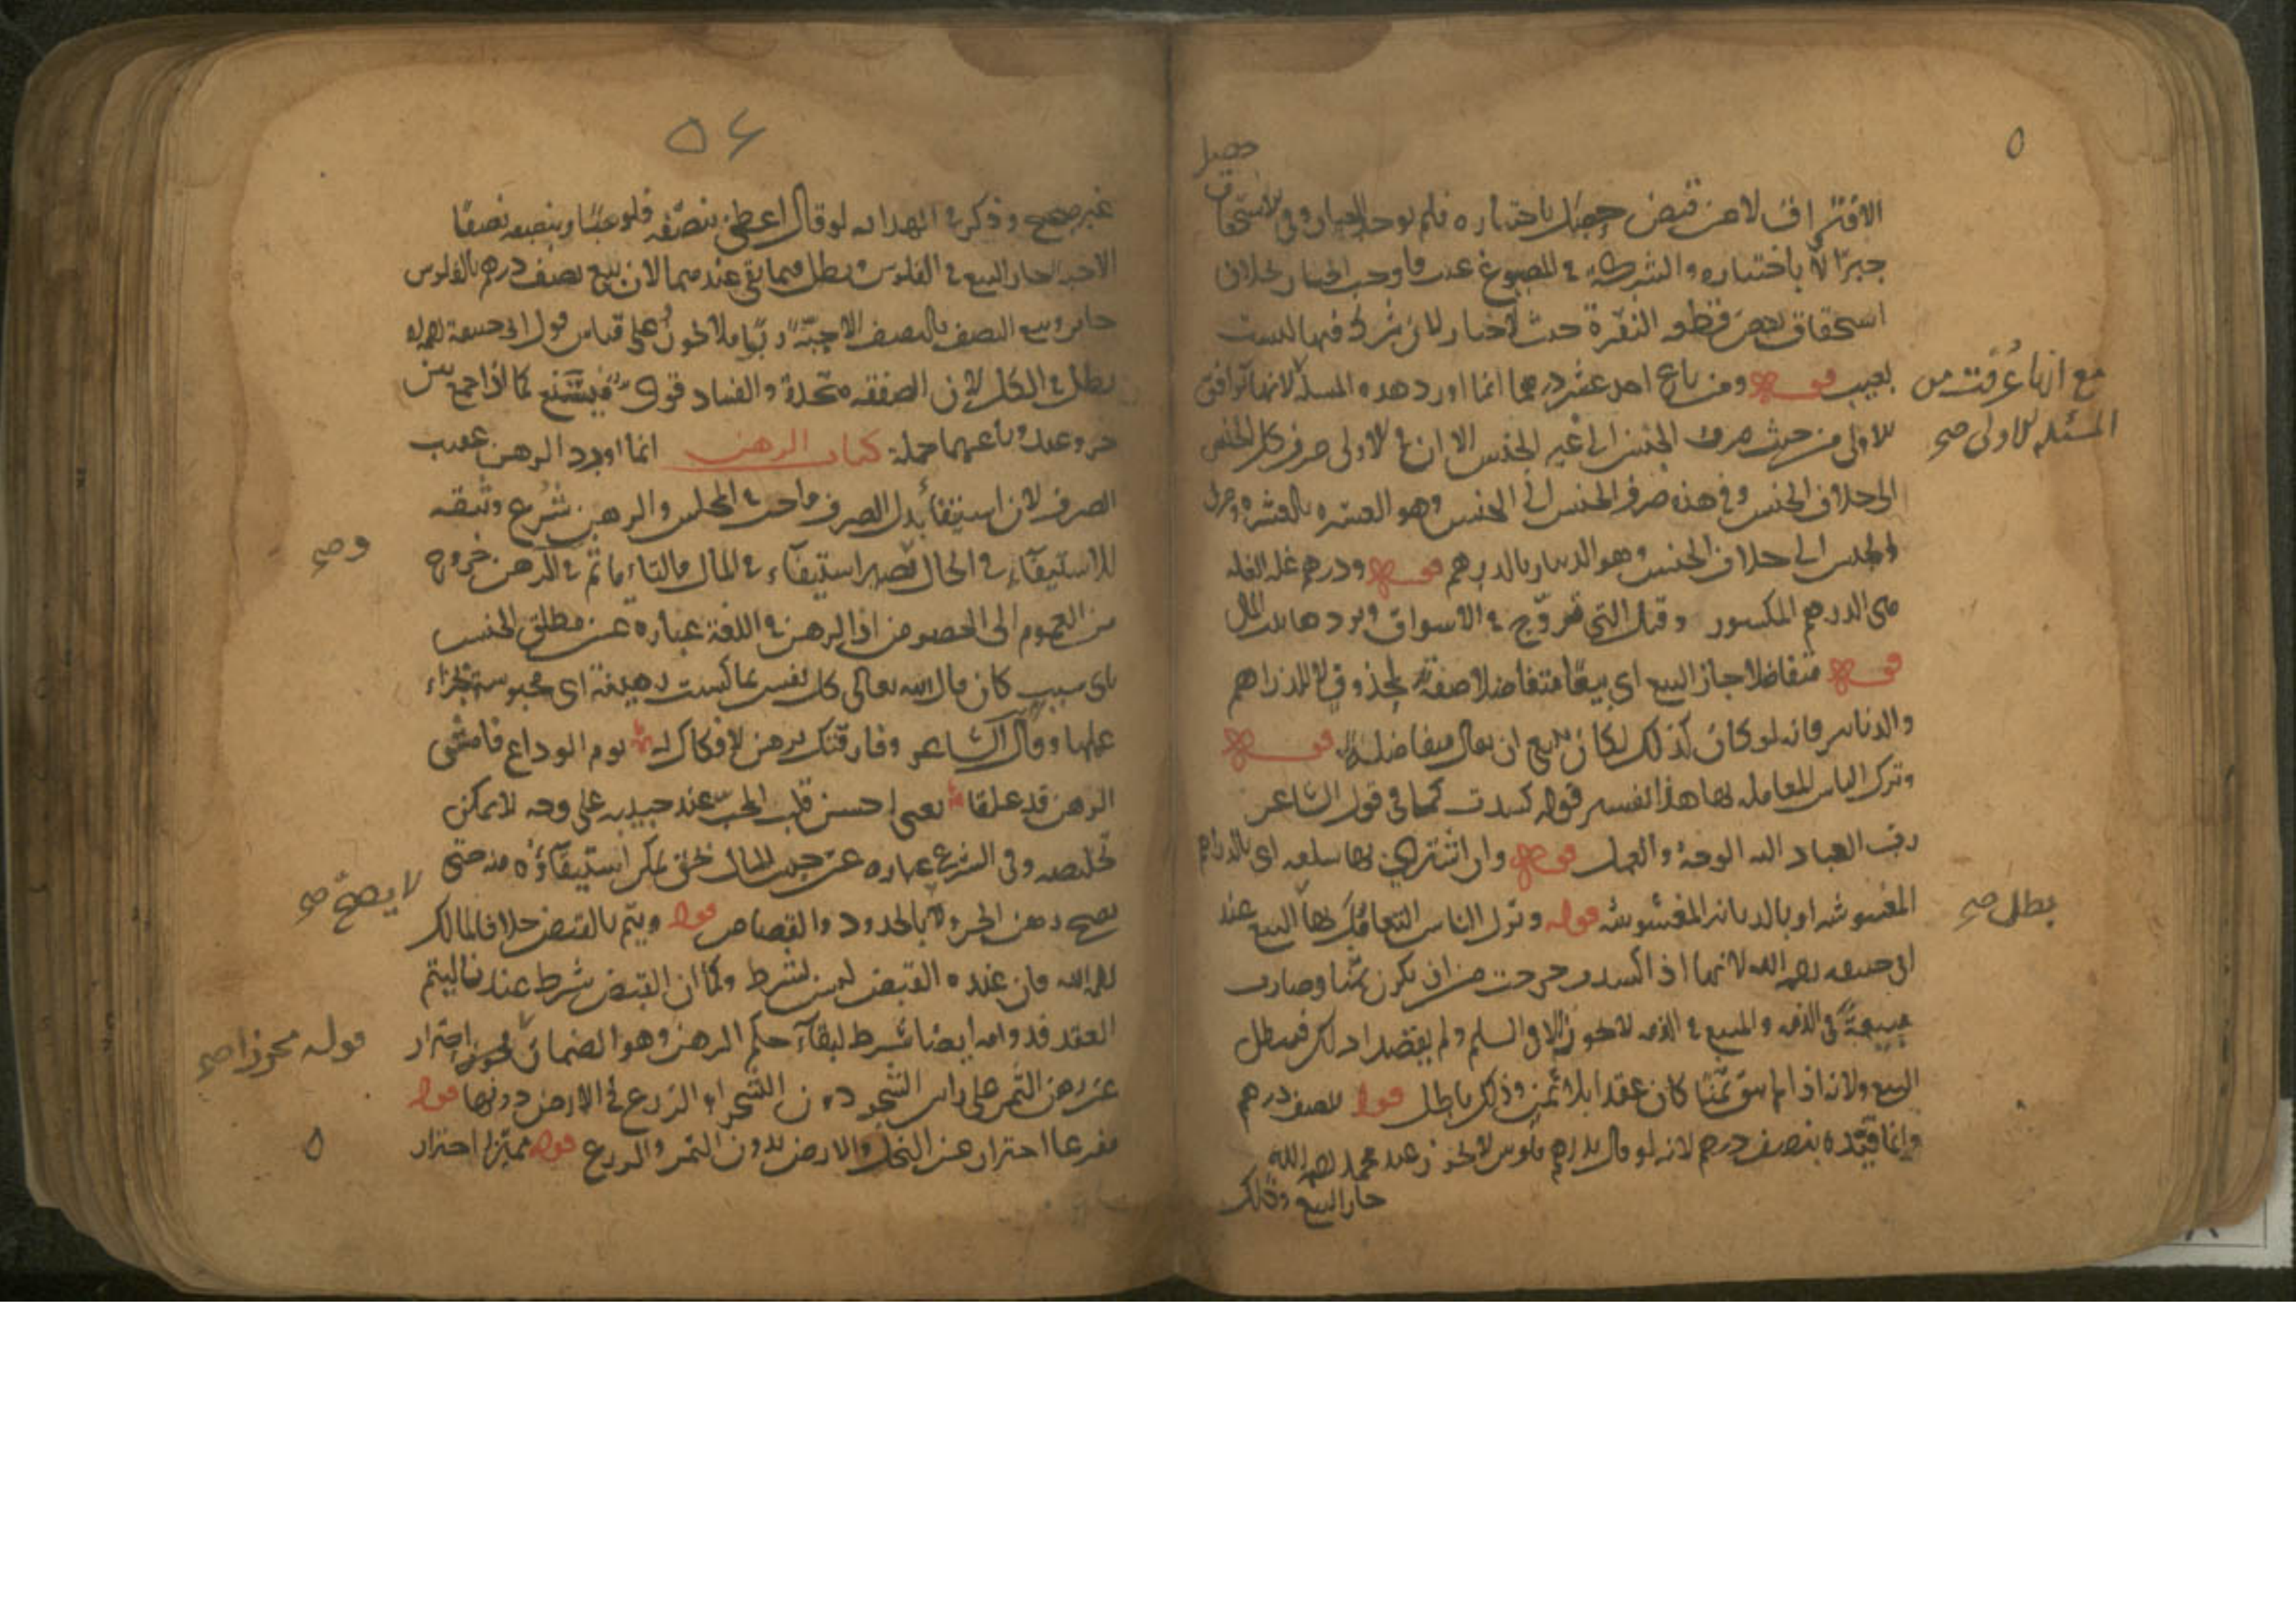 حصل
الافتراق لا عن قبض حصل باختياره فلم يوجد العيار وفي الاستحقاق
جبرًا لا باختياره والشركة في المصوغ عدت فاوجب الخيار بخلاف
استحقاق بعض قطع النقرة حيث لا خيار لان الشركة فيها ليست
بعيب قوله ومن باع احد عشر درهما انما اورد هذه المسئلة لانها توافق
مع انها عرفت من
المسئلة الاولى صح
للاولى من حيث صرف الجنس الى غير الجنس الا ان في الاولى صرف كل الجنس
الى خلاف الجنس وفي هذه صرف الجنس الى الجنس وهو العشرة بالعشرة وصرف
الجنس الى خلاف الجنس وهو الدينار بالدرهم قوله ودرهم غلة الغلة
هي الدرهم المكسور وقيل التي تروّج في الاسواق ويردها بيت المال
قوله متفاضلا جاز البيع اى بيعًا متفاضلا صفة لمحذوف لا للدراهم
والدنانير فانه لو كان كذلك لكان ينبغي ان يقال متفاضلة قوله
وترك الناس المعاملة بها هذا تفسير قوله كسدت كما في قول الشاعر
رب العباد اليه الوجه والعمل قوله وان اشترى بها سلعة اى بالدراهم
المغشوشة او بالدنانير المغشوشة قوله وترك الناس التعامل بها البيع عند
بطل صح
ابى حنيفة رحمه الله لانها اذا كسدت خرجت من ان يكون ثمنًا وصارت
مبيعة في الذمة والمبيع في الذمة لا يجوز الا في السلم ولم يقصدا ذلك فيبطل
البيع ولانه اذا لم يبق ثمنًا كان عقدا بلا ثمن وذلك باطل قوله بنصف درهم
وانما قيّده بنصف درهم لانه لو قال بدرهم فلوس لا يجوز عند محمد رحمه الله
جاز البيع وذلك
٥٤
غير صحيح وذكر في الهداية لو قال اعطني بنصفه فلوسًا وبنصفه نصفًا
الا حبة جاز البيع في الفلوس وبطل فيما بقي عندهما لان بيع نصف درهم بالفلوس
جائز وبيع النصف بالنصف الا حبّة ربًا فلا يجوز وعلى قياس قول ابى حنيفة رحمه الله
بطل في الكل لان الصفقة متحدة والفساد قوىّ فيشيع كما اذا جمع بين
حر وعبد وباعهما جملة كتاب الرهن انما اورد الرهن عقيب
الصرف لان استيفاء بدل الصرف واجب في المجلس والرهن شرع وثيقة
للاستيفاء في الحال ليصير استيفاء في المال
وصح
من العموم الى الخصوص اذ الرهن في اللغة عبارة عن مطلق الحبس
باى سبب كان قال الله تعالى كل نفس بما كسبت رهينة اى محبوسة بجزاء
عملها وقال الشاعر وفارقتك برهن لا فكاك له يوم الوداع فامسى
الرهن قد غلقا يعني احبس قلب المحب عند حبيبه على وجه لا يمكن
تخليصه وفي الشرع عبارة عن حبس المال بحق يمكن استيفاؤه منه حتى
لا يصح صح
يصح رهن الحر ولا بالحدود والقصاص قوله ويتم بالقبض خلافا لمالك
رحمه الله فان عنده القبض ليس بشرط وكما ان القبض شرط عندنا ليتم
العقد فدوامه ايضا شرط لبقاء حكم الرهن وهو الضمان احتراز
قوله محوزا صح
عن رهن الثمر على راس الشجر دون الشجر او الزرع في الارض دونها قوله
مفرغا احتراز عن النخل والارض بدون الثمر والزرع قوله مميزا احتراز